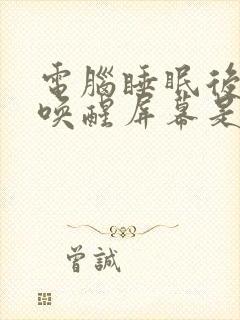 電腦睡眠後
喚醒屏幕是
曾誠